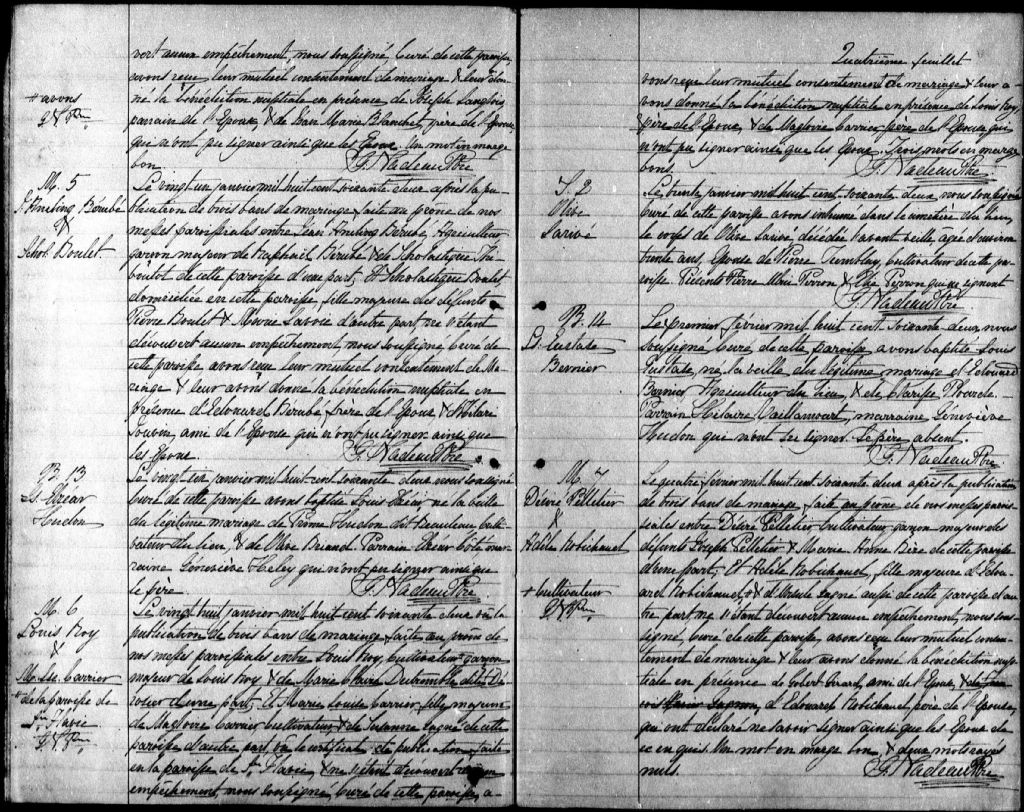 vert aucun empêchement, nous soussigné, curé de cette paroisse,
+ avons
avons reçu leur mutuel consentement de mariage & leur don-
né la bénédiction nuptiale en présence de Joseph Langlois
parrain de l'Epoux, & de Jean Marie Blanchet, père de l'Epouse,
qui n'ont pu signer ainsi que les Epoux. Un mot en marge
bon. G. Nadeau Ptre
M. 5
J. Anteling Bérubé
&
Schol. Boulet.
Le vingt un janvier mil huit cent soixante deux après la pu-
blication de trois bans de mariage, faite au prône de nos
messes paroissiales entre Jean Bérubé, Agriculteur
garçon majeur de Raphaël Bérubé & de Scholastique
de cette paroisse d'une part, Et Scholastique Boulet,
domiciliée en cette paroisse, fille majeure des défunts
Pierre Boulet & Marie Savoie d'autre part, ne s'étant
découvert aucun empêchement, nous soussigné Curé de
cette paroisse avons reçu leur mutuel consentement de Ma-
riage & leur avons donné la bénédiction nuptiale en
présence d'Edouard Bérubé frère de l'Epoux & d'Hilaire
ami de l'Epouse qui n'ont pu signer ainsi que
les Epoux. G. Nadeau Ptre
B. 13
L. Elzear
Hudon
Le vingt six janvier mil huit cent soixante deux nous soussigné
curé de cette paroisse avons baptisé Louis Elzéar né la veille
du légitime mariage de Prime Hudon dit Beaulieu culti-
vateur du lieu & de Olive Briand. Parrain Elzear Côté mar-
raine Geneviève qui n'ont pu signer ainsi que
le père. G. Nadeau Ptre
M. 6
Louis Roy
&
M. Lse. Carrier
+ de la paroisse de
Ste. Flavie
Le vingt huit janvier mil huit cent soixante deux vu la
publication de trois bans de mariage faite au prône de
nos messes paroissiales entre Louis Roy, Cultivateur garçon
majeur de Louis Roy & de Marie Claire
d'une part, Et Marie Louise Carrier, fille mineure
de Magloire Carrier cultivateur & de Suzanne Gagné de cette
paroisse d'autre part vu le certificat de publication faite
en la paroisse de Ste. Flavie, & ne s'étant découvert aucun
empêchement, nous soussigné Curé de cette paroisse, a-
Quatrième feuillet
vons reçu leur mutuel consentement de mariage & leur a-
vons donné la bénédiction nuptiale en présence de Louis Roy
père de l'Epoux & de Magloire Carrier père de l'Epouse qui
n'ont pu signer ainsi que les Epoux. Trois mots en marge
bons. G. Nadeau Ptre
S. 2
Olive
Larivé
Le trente janvier mil huit cent soixante deux, nous soussigné
curé de cette paroisse avons inhumé dans le cimetière du lieu
le corps de Olive Larivé décédée l'avant veille, âgée d'environ
trente ans épouse de Pierre Tremblay, cultivateur de cette pa-
roisse. Présents Pierre Perron & Elie Perron qui ne signent
G. Nadeau Ptre
B. 14
L. Eustate
Bernier
Le premier février mil huit cent soixante deux, nous
soussigné, curé de cette paroisse avons baptisé Louis
Eustate, né la veille du légitime mariage et Edouard
Bernier Agriculteur du lieu, & de Clarisse
Parrain Hilaire Vaillancourt, marraine Geneviève
Hudon qui n'ont su signer. Le père absent.
G. Nadeau Ptre
M. 7
Désiré Pelletier
&
Adèle Robichaud
+ cultivateur
Le quatre février mil huit cent soixante deux après la publication
de trois bans de mariage, fait au prône de nos messes parois-
siales entre Désiré Pelletier cultivateur garçon majeur des
défunts Joseph Pelletier & Marie Anne de cette paroisse
d'une part, Et Adèle Robichaud, fille majeure d'Edou-
ard Robichaud, + & d'Ursule Gagné aussi de cette paroisse d'au-
tre part, ne s'étant découvert aucun empêchement, nous sous-
signé, Curé de cette paroisse, avons reçu leur mutuel consen-
tement de mariage & leur avons donné la bénédiction nup-
tiale en présence de Girard, ami de l'Epoux,
d'Edouard Robichaud père de l'Epouse,
qui ont déclaré ne savoir signer ainsi que les Epoux de
ce enquis. Un mot en marge bon, & deux mots rayés
nuls. G. Nadeau Ptre